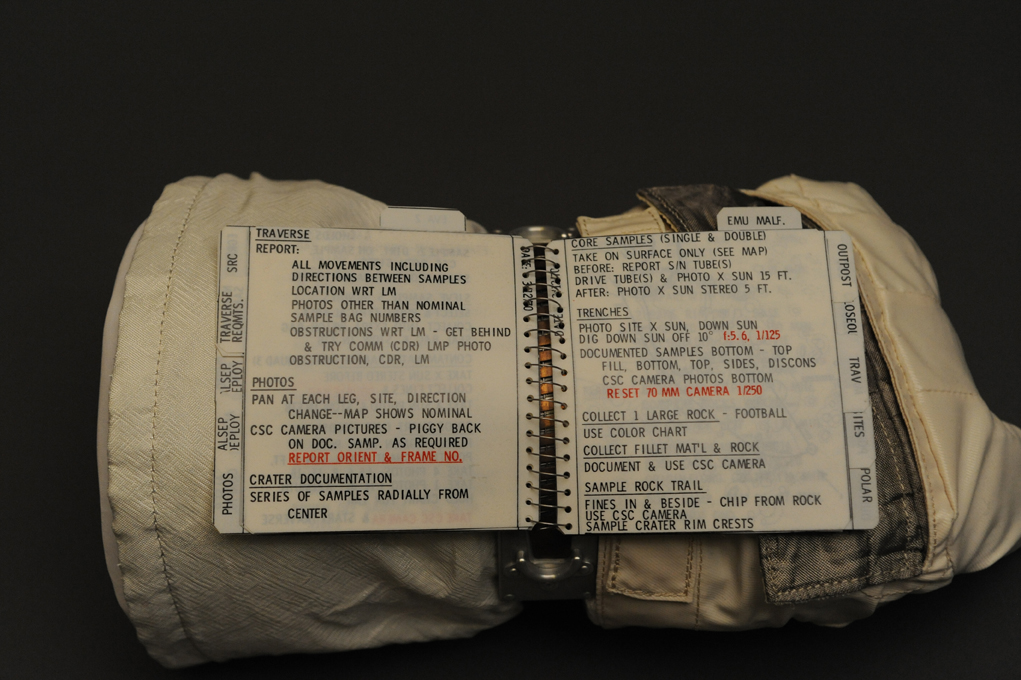 TRAVERSE
REPORT:
ALL MOVEMENTS INCLUDING
DIRECTIONS BETWEEN SAMPLES
LOCATION WRT LM
PHOTOS OTHER THAN NOMINAL
SAMPLE BAG NUMBERS
OBSTRUCTIONS WRT LM - GET BEHIND
& TRY COMM (CDR) LMP PHOTO
OBSTRUCTION, CDR, LM
PHOTOS
PAN AT EACH LEG, SITE, DIRECTION
CHANGE--MAP SHOWS NOMINAL
CSC CAMERA PICTURES - PIGGY BACK
ON DOC. SAMP. AS REQUIRED
REPORT ORIENT & FRAME NO.
CRATER DOCUMENTATION
SERIES OF SAMPLES RADIALLY FROM
CENTER
SRC
TRAVERSE
REQMTS.
ALSEP
ALSEP
PHOTOS
EMU MALF.
CORE SAMPLES (SINGLE & DOUBLE)
TAKE ON SURFACE ONLY (SEE MAP)
BEFORE: REPORT S/N TUBE(S)
DRIVE TUBE(S) & PHOTO X SUN 15 FT.
AFTER: PHOTO X SUN STEREO 5 FT.
TRENCHES
PHOTO SITE X SUN, DOWN SUN
DIG DOWN SUN OFF 10° f:5.6, 1/125
DOCUMENTED SAMPLES BOTTOM - TOP
FILL, BOTTOM, TOP, SIDES, DISCONS
CSC CAMERA PHOTOS BOTTOM
RESET 70 MM CAMERA 1/250
COLLECT 1 LARGE ROCK - FOOTBALL
USE COLOR CHART
COLLECT FILLET MAT'L & ROCK
DOCUMENT & USE CSC CAMERA
SAMPLE ROCK TRAIL
FINES IN & BESIDE - CHIP FROM ROCK
USE CSC CAMERA
SAMPLE CRATER RIM CRESTS
OUTPOST
OSEOL
TRAV
ITES
POLAR